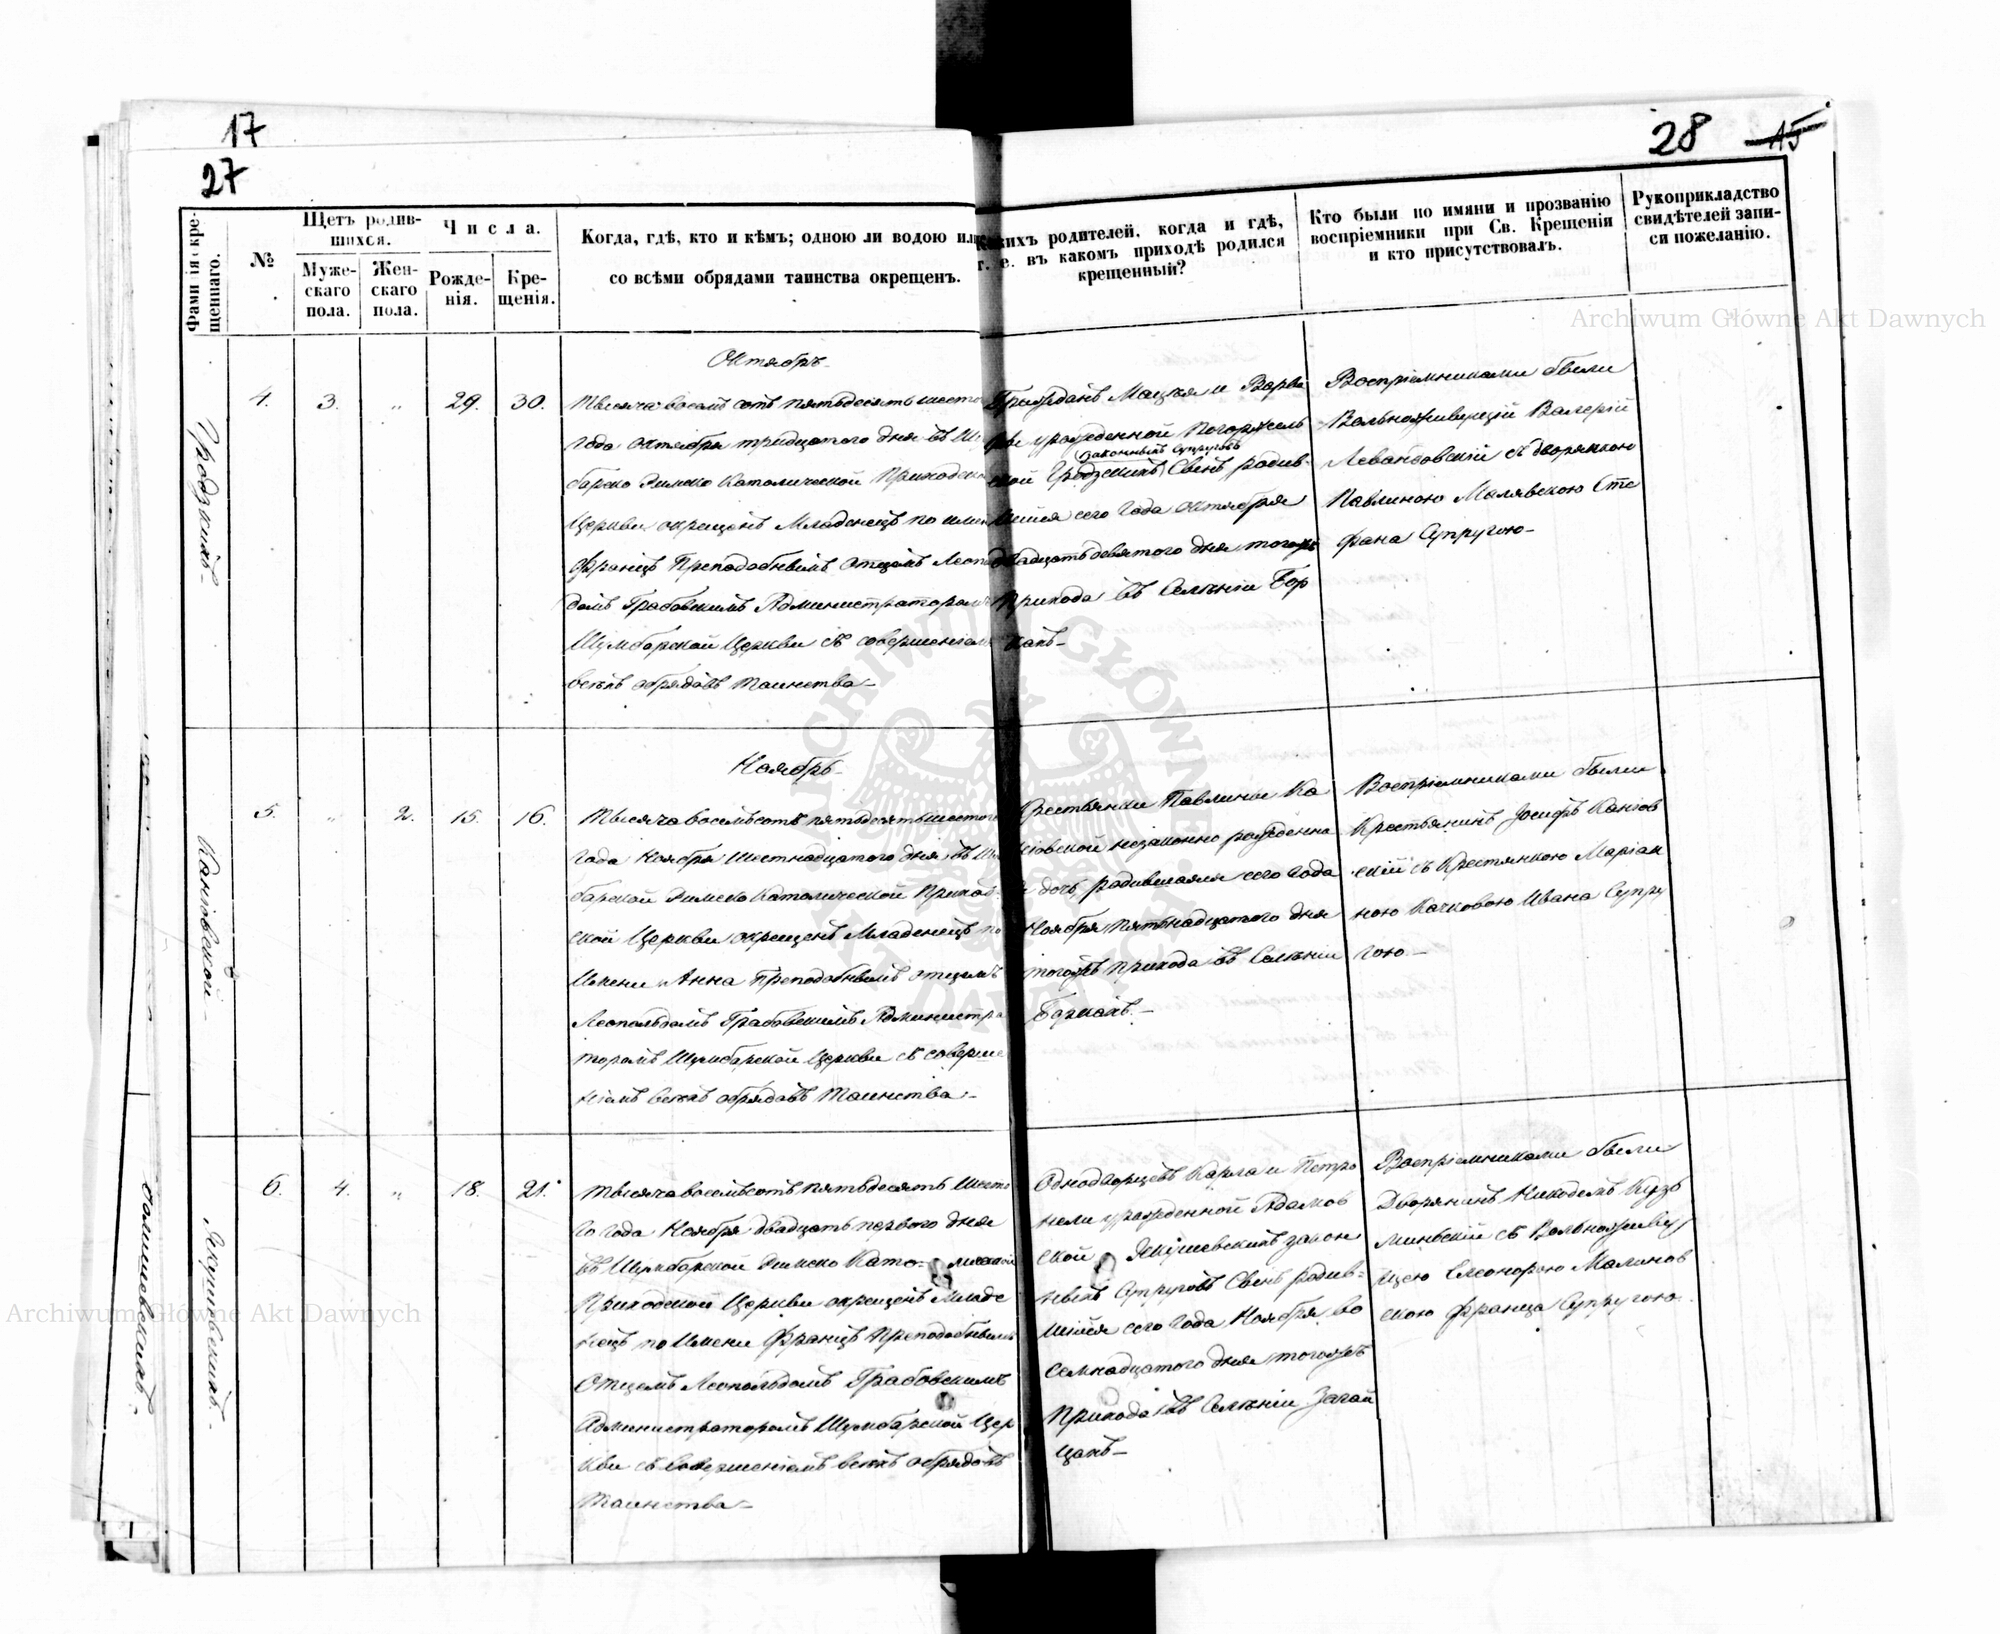 17
27
28 15
Фамилія крещеннаго.
№
Щетъ родившихся.
Мужескаго пола.
Женскаго пола.
Числа.
Рожденія.
Крещенія.
Когда, гдѣ, кто и кѣмъ; одною ли водою или
со всѣми обрядами таинства окрещенъ.
Какихъ родителей, когда и гдѣ,
т. е. въ какомъ приходѣ родился
крещенный?
Кто были по имяни и прозванію
воспріемники при Св. Крещеніи
и кто присутствовалъ.
Рукоприкладство
свидѣтелей записи пожеланію.
Archiwum Główne Akt Dawnych
Гродзкихъ
4. 3. " 29. 30.
Октябръ
Тысяча восемь сотъ пятьдесятъ шесто
года октября тридцатого дня въ Шу
барско Римско Католической Приходско
Церкви окрещенъ Младенецъ по имя
Францъ Преподобнымъ Отцемъ Леопо
домъ Грабовскимъ Администраторомъ
Шумбарской Церкви съ совершеніемъ
всѣхъ обрядовъ таинства
Гражданъ Мацѣя и Варва
ры урожденной Погоржель
законныхъ супруговъ
ской Гродзскихъ Сынъ родив-
шійся сего года октября
двадцать девятого дня тогожъ
прихода въ Селѣніи Бор
кахъ
Воспріемниками были
Вольноживущій Валерій
Левандовскій съ дворянкою
Павлиною Малявскою Сте
фана Супругою
Каніовской
5. " 2. 15. 16.
Ноябрь
Тысяча восемьсотъ пятьдесятъ шестого
года Ноября шестнадцатого дня въ Шум
барской Римско Католической Приход-
ской Церкви окрещенъ Младенецъ по
Имени Анна Преподобнымъ отцемъ
Леопольдомъ Грабовскимъ Администра
торомъ Шумбарской Церкви съ соверше
ніемъ всѣхъ обрядовъ Таинства
Крестьянки Павлины Ка
ніовской незаконно рожденна
я дочь, родившаяся сего года
Ноября пятьнадцатого дня
тогожъ прихода въ Селѣніи
Боркахъ.
Воспріемниками были
Крестьянинъ Іосифъ Каніов
скій съ Крестянкою Маріан
ною Качковою Ивана Супру
гою
Якушевскихъ
6. 4. " 18. 21.
Тысяча восемьсотъ пятьдесятъ шесто
го года Ноября двадцать первого дня
въ Шумбарской Римско Като-лической
Приходской Церкви окрещенъ Младе
нецъ по Имени Францъ Преподобнымъ
Отцемъ Леопольдомъ Грабовскимъ
Администраторомъ Шумбарской Цер
кви съ совершеніемъ всѣхъ обрядовъ
Таинства
Однодворцевъ Карла и Петро
нели урожденной Адамов
ской Якушевскихъ закон
ныхъ Супруговъ Сынъ родив-
шійся сего года Ноября во
семнадцатого дня тогожъ
Прихода въ Селѣніи Загай
цахъ
Воспріемниками были
Дворянинъ Никодемъ Кузь
миньскій съ Вольноживу
щею Елеонорою Малинов
скою Франца Супругою
Archiwum Główne Akt Dawnych